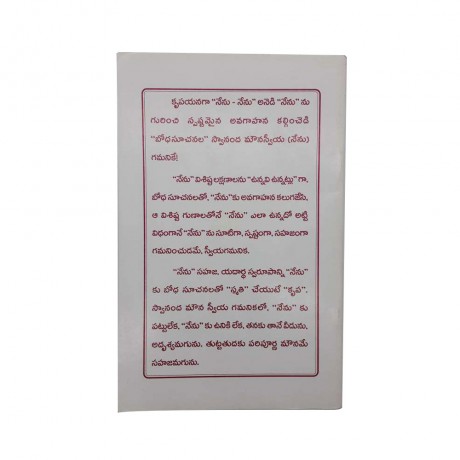 కృపయనగా "నేను - నేను" అనెడి "నేను" ను
గురించి స్పష్టమైన అవగాహన కల్గించెడి
"బోధసూచనల" స్వానంద మౌనస్వీయ (నేను)
గమనికే!
"నేను" విశిష్ట లక్షణాలను "ఉన్నవి ఉన్నట్లు" గా,
బోధ సూచనలతో, "నేను"కు అవగాహన కలుగజేసి,
ఆ విశిష్ట గుణాలతోనే "నేను" ఎలా ఉన్నదో అట్టి
విధంగానే "నేను" ను సూటిగా, స్పష్టంగా, సహజంగా
గమనించుడమే, స్వీయగమనిక.
"నేను" సహజ, యదార్థ స్వరూపాన్ని "నేను"
కు బోధ సూచనలతో "స్మృతి" చేయుటే "కృప".
స్వానంద మౌన స్వీయ గమనికలో, "నేను" కు
పట్టులేక, "నేను" కు ఉనికి లేక, తనకు తానే వీడును,
అదృశ్యమగును. తుట్టతుదకు పరిపూర్ణ మౌనమే
సహజమగును.